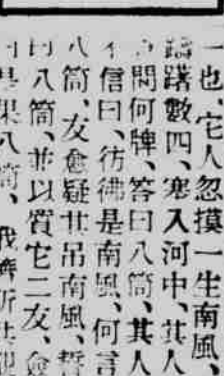 一也、它人忽摸一生南風、
躊躇數四、塞入河中、其人
問何牌、答曰八筒、其人
不信曰、彷彿是南風、何言
八筒、友愈疑其吊南風、誓
曰八筒、並以質它二友、僉
曰是果八筒、我濟所共